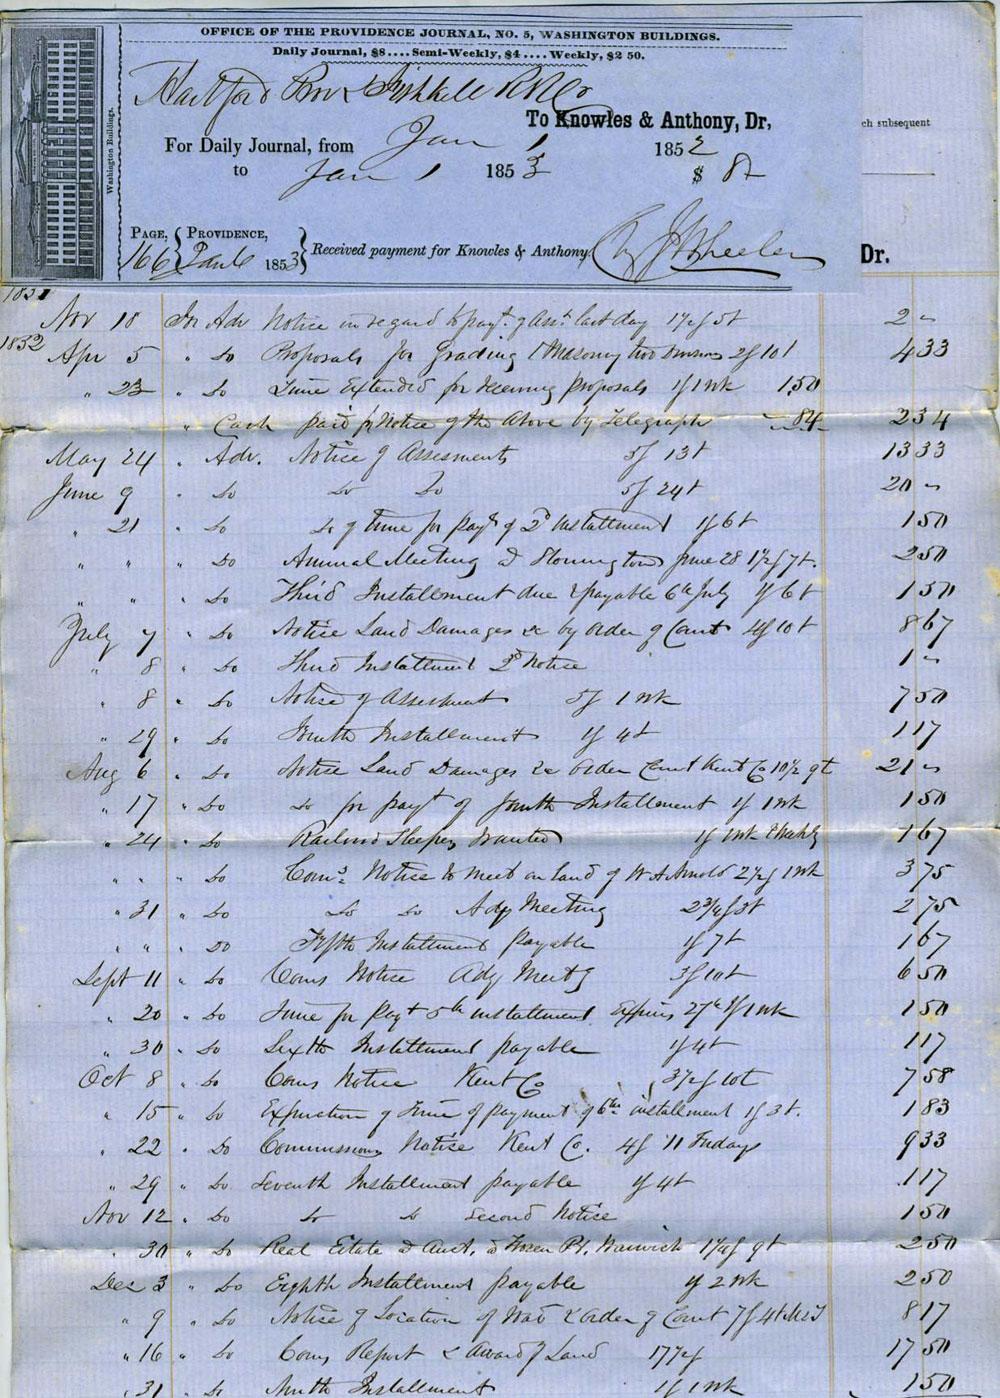 OFFICE OF THE PROVIDENCE JOURNAL, NO. 5, WASHINGTON BUILDINGS.
Daily Journal, $8....Semi-Weekly, $4....Weekly, $2 50.
Washington Buildings.
Hartford Prov & Fishkill RR Co
To Knowles & Anthony, Dr,
For Daily Journal, from Jan 1 1852
to Jan 1 1853 $ 8
PAGE, 166 PROVIDENCE, 1853 Received payment for Knowles & Anthony.
By J Wheeler
ch subsequent
Dr.
1851
Nov 18 For Adv Notice in regard to payt. of Asst. last day 2 "
1852
Apr 5 " Do Proposals for Grading & Masonry two Divisions 2f 10t 4 33
" 23 " Do Time Extended for receiving proposals 1f 1wk 1.50
" Cash paid for Notice of the Above by Telegraph .84 2 34
May 24 " Adv. Notice of Assesments 5f 13t 13 33
June 9 " Do Do Do 5f 24t 20 "
" 21 " Do Do of time for payt of 2d Installment 1f 6t 1 50
" " " Do Annual Meeting at Stonington June 28 1½f 7t. 2 50
" " " Do Third Installment due & payable 6th July 1f 6t 1 50
July 7 " Do Notice Land Damages &c by order of Court 4f 10t 8 67
" 8 " Do Third Installment 2d Notice 1 "
" 8 " Do Notice of Assessment 5f 1 wk 7 50
" 29 " Do Fourth Installment 1f 4t 1 17
Aug 6 " Do Notice Land Damages &c Order Court Kent Co 10½ 9t 21 "
" 17 " Do Do for payt of fourth Installment 1f 1wk 1 50
" 24 " Do Railroad Sleepers Wanted 1f 1wk & Wekly 1 67
" " " Do Coms. Notice to meet on land of W A Arnold 2½f 1wk 3 75
" 31 " Do Do Do Adj Meeting 2¾f 3t 2 75
" " " Do Fifth Installment payable 1f 7t 1 67
Sept 11 " Do Coms Notice Adj Meetg 3f 10t 6 50
" 20 " Do Time for payt 5th installment Expires 27th 1f 1wk 1 50
" 30 " Do Sixth Installment payable 1f 4t 1 17
Oct 8 " Do Coms Notice Kent Co 3½f 10t 7 58
" 15 " Do Expiration of Time of payment of 6th installment 1f 3t. 1 83
" 22 " Do Commissions Notice Kent Co. 4f 11 Fridays 9 33
" 29 " Do Seventh Installment payable 1f 4t 1 17
Nov 12 " Do Do Do Second Notice 1 50
" 30 " Do Real Estate at Auct. at Green Pt. Warwick 9t 2 50
Dec 3 " Do Eighth Installment payable 1f 2 wk 2 50
" 9 " Do Notice of Location of Road & Order of Court 7f 4t 8 17
" 16 " Do Coms Report & Award of Land 17½f 17 50
" 31 " Do Ninth Installment 1f 1wk 1 50